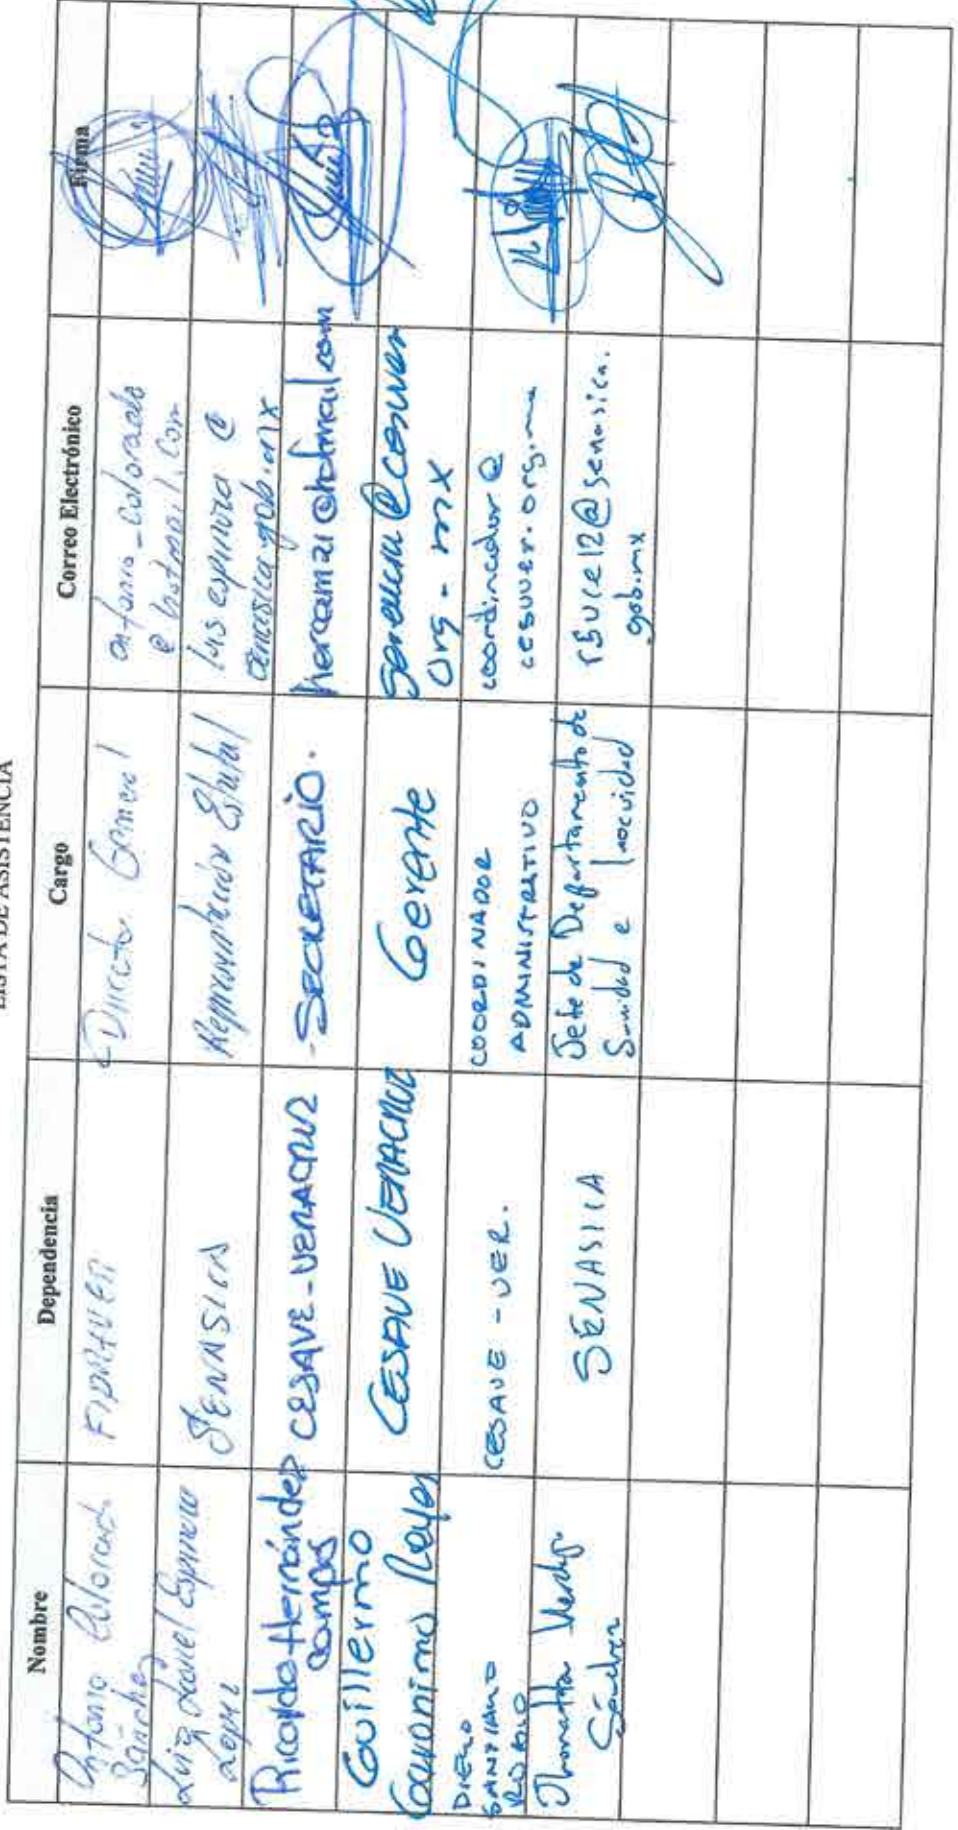 LISTA DE ASISTENCIA
Nombre Dependencia Cargo Correo Electrónico Firma
Antonio Colorado
Sánchez
FIDREVER
Director General
antonio_colorado
@hotmail.com
Luis Daniel Espinoza
Lopez
SENASICA
Representación Estatal
luis espinoza @
senasica.gob.mx
Ricardo Hernández
Campos
CESAVE-VERACRUZ
-SECRETARIO.
hercam21@hotmail.com
Guillermo
Geronimo Reyes
CESAVE VERACRUZ
Gerente
gerencia@cesuver
org-mx
DIEGO
SANTIAGO
ROSARIO
CESAVE-VER.
COORDINADOR
ADMINISTRATIVO
coordinador@
cesuver.org.mx
Jhonattan
Sánchez
SENASICA
Jefe de Departamento de
Sanidad e Inocuidad
@senasica.
gob.mx